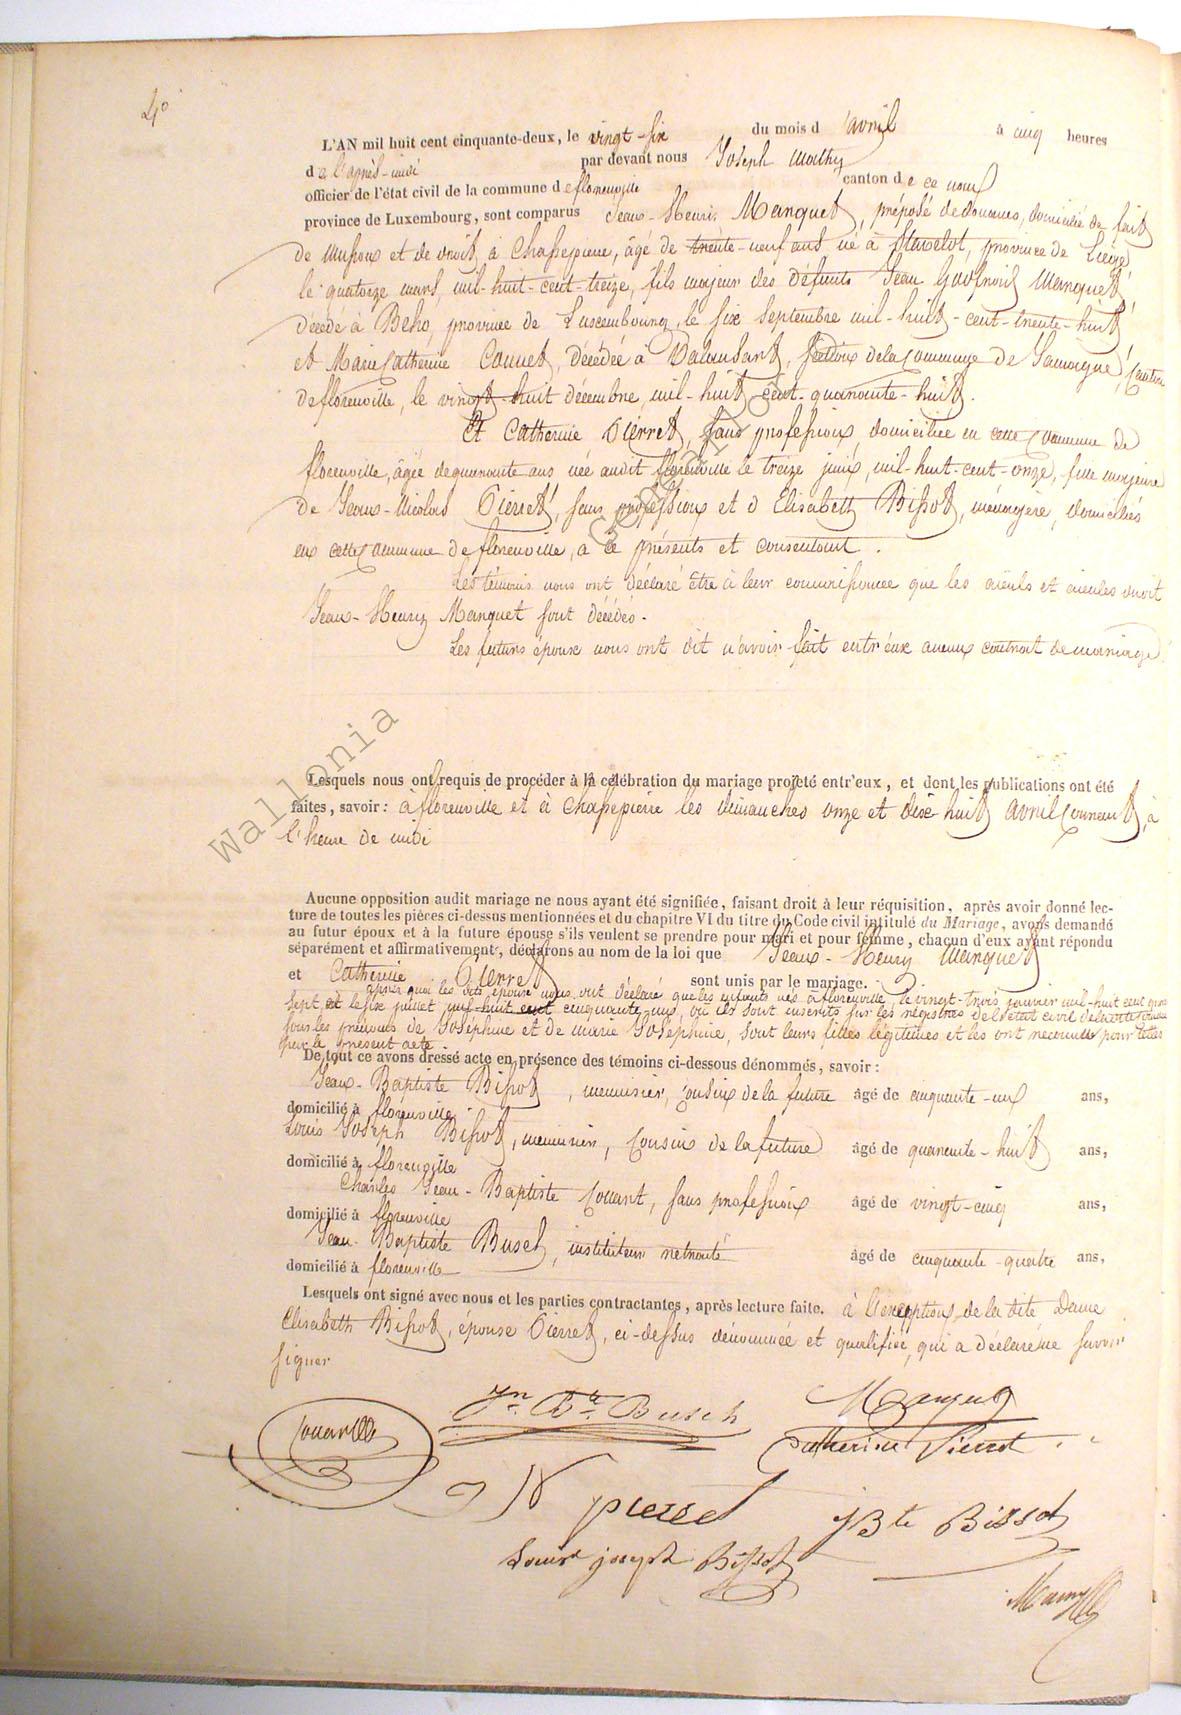 4°
L'AN mil huit cent cinquante-deux, le vingt-six du mois d'avril à cinq heures
de l'après-midi par devant nous Joseph Mathy
officier de l'état civil de la commune de florenville canton de ce nom
province de Luxembourg, sont comparus Jean-Henri Manquet, préposé de douanes, domicilié de fait
de et de droit à Chassepierre, âgé de trente-neuf ans né à Stavelot, province de Liège,
le quatorze mars, mil-huit-cent-treize, fils majeur des défunts Jean Godfroid Manquet,
décédé à Beho, province de Luxembourg, le six septembre mil-huit-cent-trente-huit
et Marie Catherine Connet, décédée à Dalansart, section de la Commune de Jamoigne, Canton
de florenville, le vingt-huit décembre, mil-huit-cent-quarante-huit.
Et Catherine Pierret, sans profession, domiciliée en cette commune de
florenville, âgée de quarante ans née audit florenville le treize juin, mil-huit-cent-onze, fille majeure
de Jean-Nicolas Pierret, sans profession et d'Elisabeth Bissot, ménagère, domiciliés
en cette commune de florenville, à ce présents et consentant.
Les témoins nous ont déclaré être à leur connaissance que les aïeuls et aïeules dudit
Jean-Henry Manquet sont décédés.
Les futurs époux nous ont dit n'avoir fait entr'eux aucun contrat de mariage.
Lesquels nous ont requis de procéder à la célébration du mariage projeté entr'eux, et dont les publications ont été
faites, savoir : à florenville et à Chassepierre les dimanches onze et dix-huit avril courant, à
l'heure de midi
Aucune opposition audit mariage ne nous ayant été signifiée, faisant droit à leur réquisition, après avoir donné lec-
ture de toutes les pièces ci-dessus mentionnées et du chapitre VI du titre du Code civil intitulé du Mariage, avons demandé
au futur époux et à la future épouse s'ils veulent se prendre pour mari et pour femme, chacun d'eux ayant répondu
séparément et affirmativement, déclarons au nom de la loi que Jean-Henry Manquet
et Catherine Pierret sont unis par le mariage.
après quoi les dits époux nous ont déclaré que les enfants nés à florenville, le vingt-trois janvier mil-huit cent quarante
sept et le six juillet mil-huit cent cinquante un, où ils sont inscrits sur les registres de l'état civil de cette commune
sous les prénoms de Joséphine et de marie Joséphine, sont leurs filles légitimes et les ont reconnues pour telles
par le présent acte.
De tout ce avons dressé acte en présence des témoins ci-dessous dénommés, savoir :
Jean-Baptiste Bissot, menuisier, cousin de la future âgé de cinquante-un ans,
domicilié à florenville.
Louis Joseph Bissot, menuisier, Cousin de la future âgé de quarante-huit ans,
domicilié à florenville
Charles Jean-Baptiste Couart, sans profession âgé de vingt-cinq ans,
domicilié à florenville
Jean-Baptiste Busch, instituteur retraité âgé de cinquante-quatre ans,
domicilié à florenville
Lesquels ont signé avec nous et les parties contractantes, après lecture faite. à l'exception de la dite Dame
Elisabeth Bissot, épouse Pierret, ci-dessus dénommée et qualifiée, qui a déclaré ne savoir
signer
Jn. Bte. Busch
Manquet
Catherine Pierret
JN pierret
JBte Bissot
Louis joseph Bissot
Wallonia